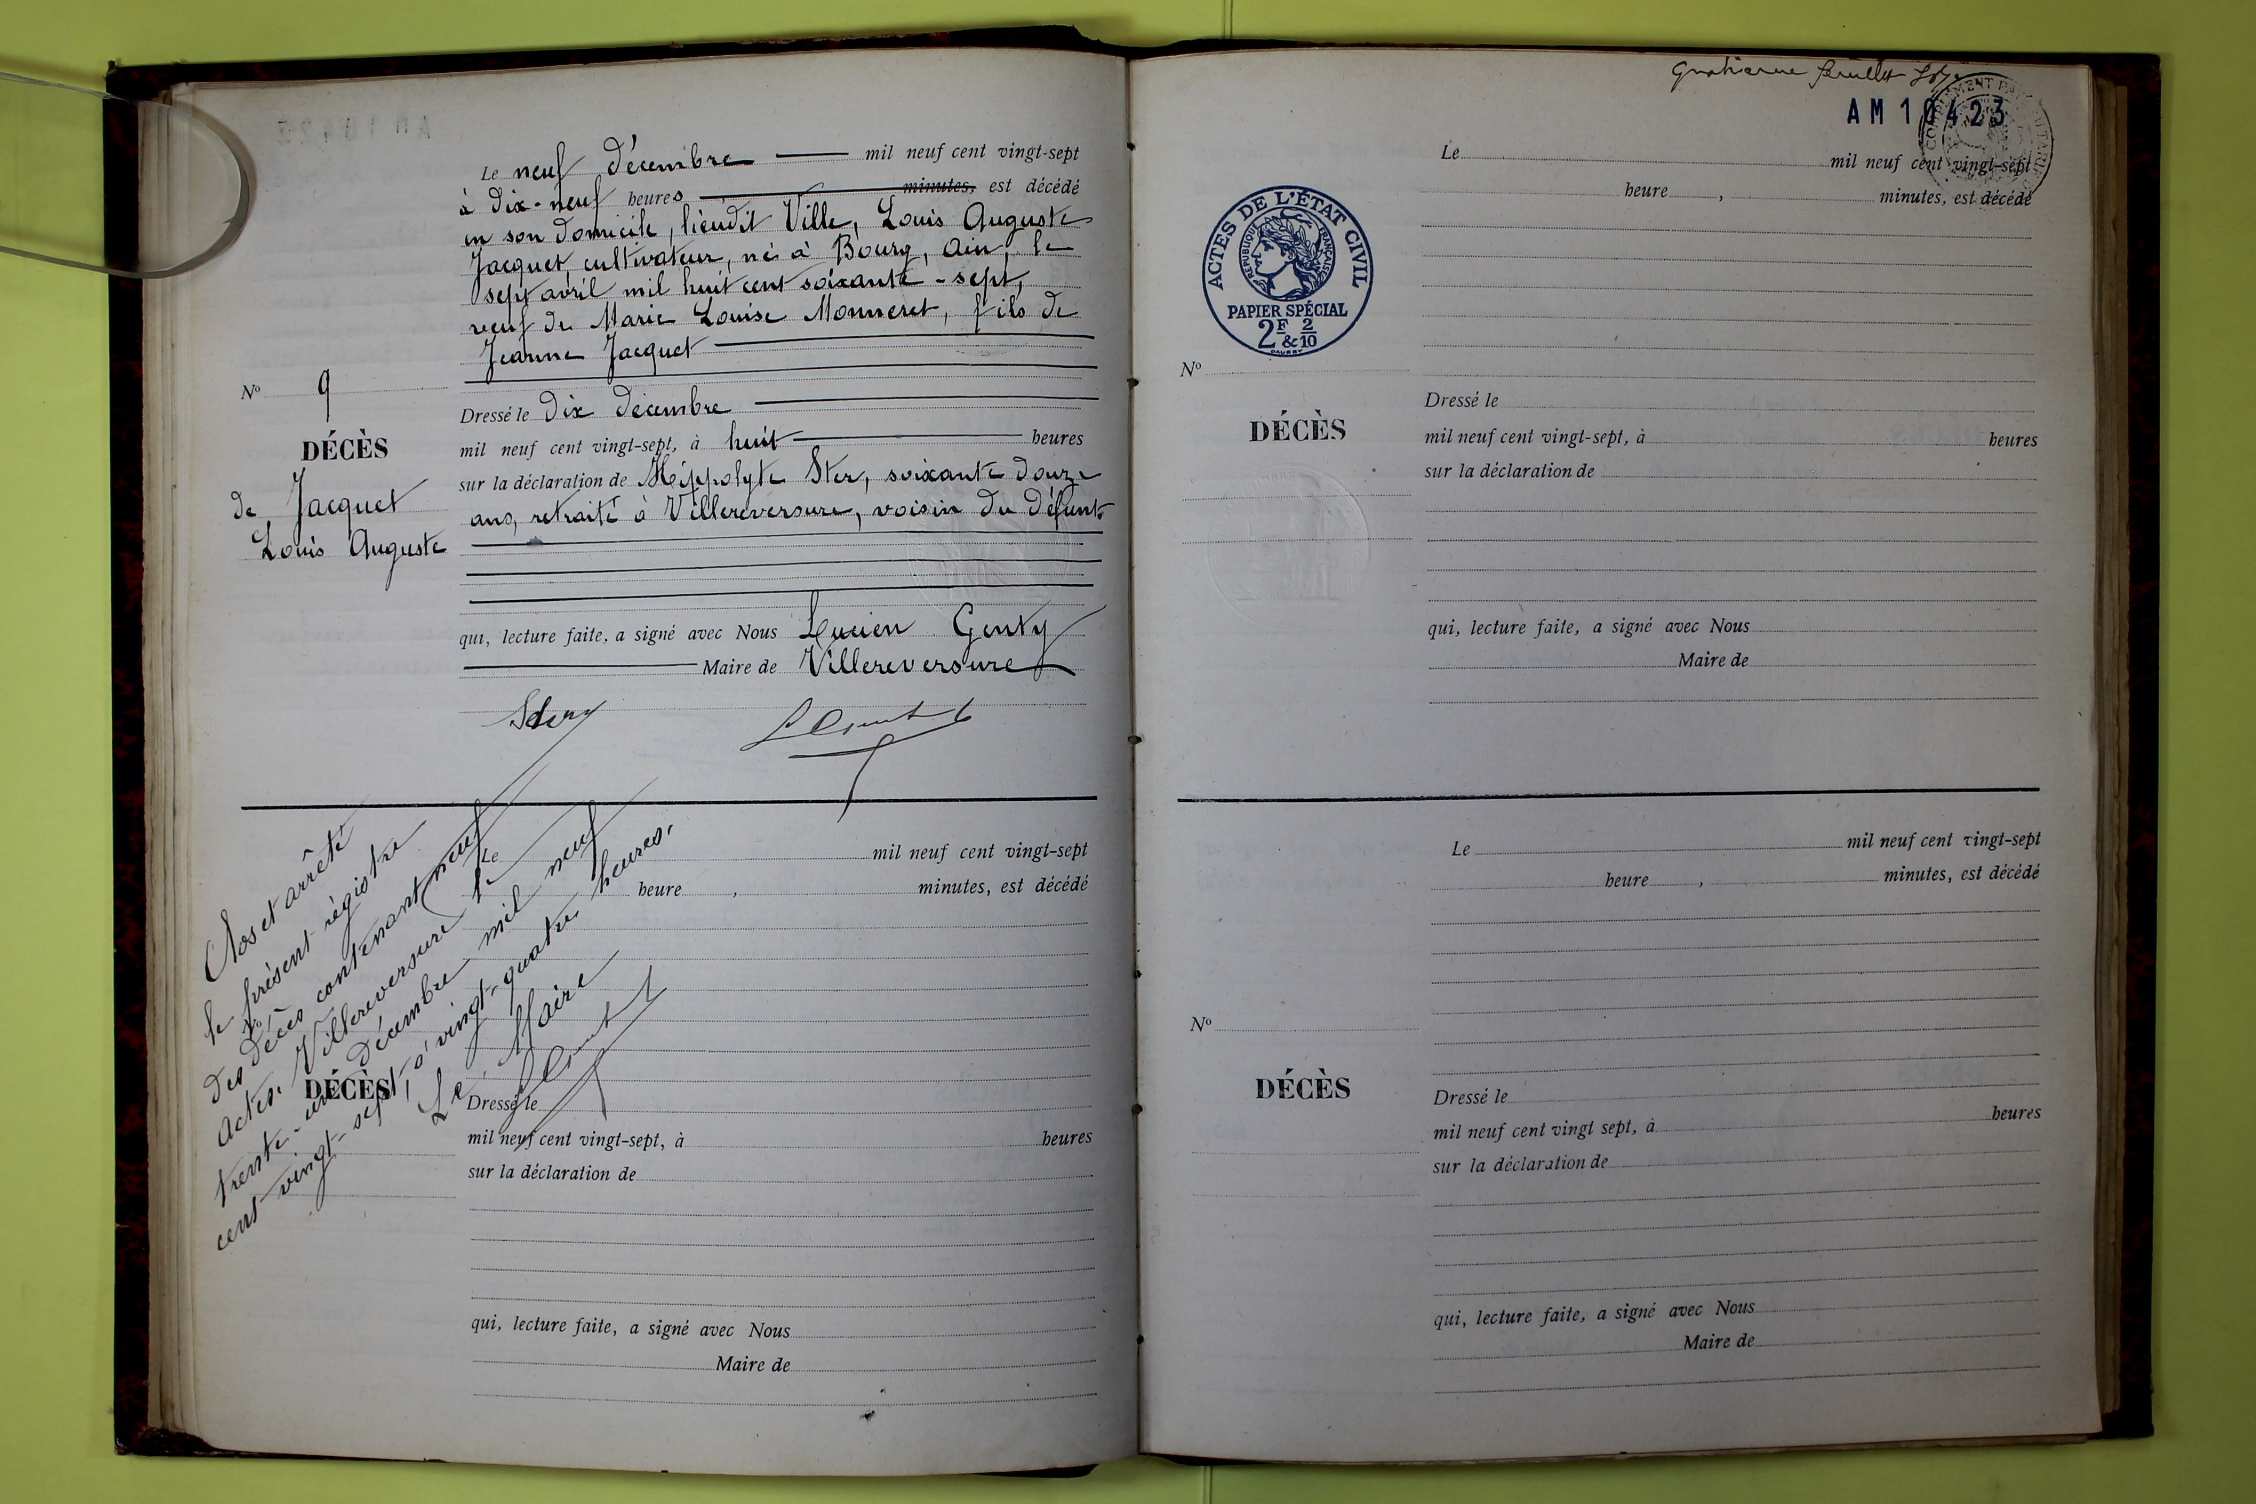 Le neuf décembre mil neuf cent vingt-sept
à dix-neuf heures minutes, est décédé
en son domicile, lieudit Ville, Louis Auguste
Jacquet, cultivateur, né à Bourg, Ain, le
sept avril mil huit cent soixante-sept,
veuf de Marie Louise Monneret, fils de
Jeanne Jacquet
No 9
DÉCÈS
de Jacquet
Louis Auguste
Dressé le dix décembre
mil neuf cent vingt-sept, à huit heures
sur la déclaration de Hippolyte Ster, soixante douze
ans, retraité à Villereversure, voisin du défunt
qui, lecture faite, a signé avec Nous Lucien Genty
Maire de Villereversure
Clos et arrêté
le présent régistre
des décès contenant neuf
actes. Villereversure le
trente-un décembre mil neuf
cent vingt-sept, à vingt-quatre heures.
Le Maire
Le mil neuf cent vingt-sept
heure , minutes, est décédé
DÉCÈS
Dressé le
mil neuf cent vingt-sept, à heures
sur la déclaration de
qui, lecture faite, a signé avec Nous
Maire de
AM 10423
Le mil neuf cent vingt-sept
heure , minutes, est décédé
ACTES DE L'ÉTAT CIVIL
RÉPUBLIQUE FRANÇAISE
PAPIER SPÉCIAL
2F & 2/10
No
DÉCÈS
Dressé le
mil neuf cent vingt-sept, à heures
sur la déclaration de
qui, lecture faite, a signé avec Nous
Maire de
Le mil neuf cent vingt-sept
heure , minutes, est décédé
No
DÉCÈS
Dressé le
mil neuf cent vingt sept, à heures
sur la déclaration de
qui, lecture faite, a signé avec Nous
Maire de